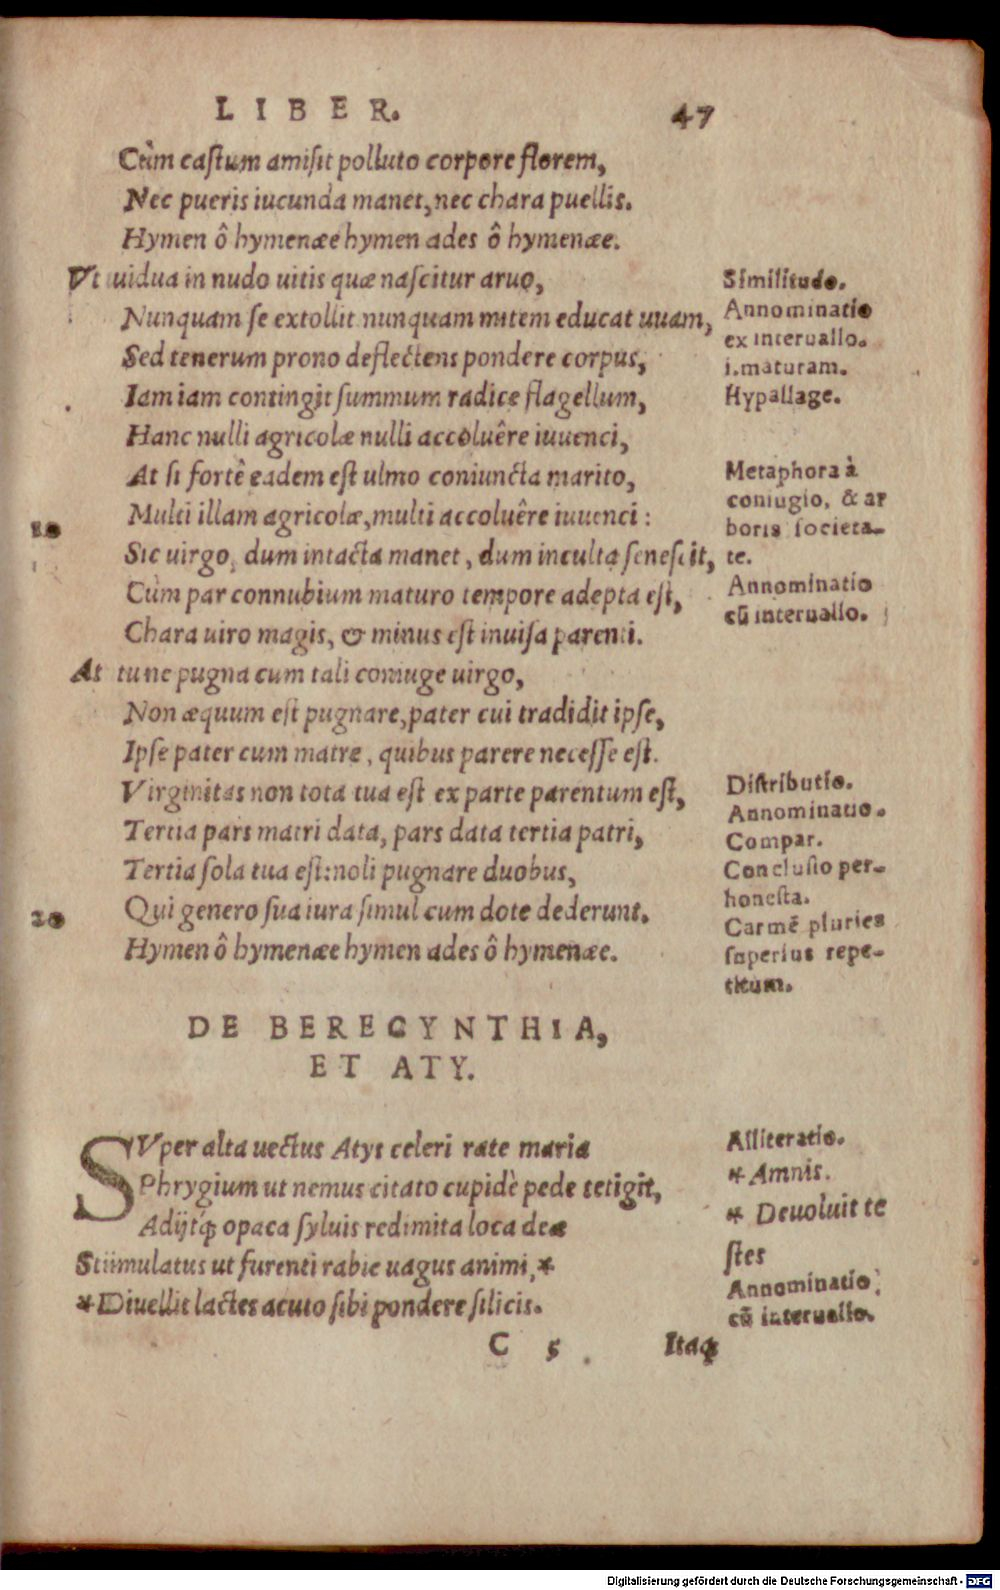 LIBER. 47
Cùm castum amisit polluto corpore florem,
Nec pueris iucunda manet, nec chara puellis.
Hymen ô hymenæe hymen ades ô hymenæe.
Vt uidua in nudo uitis quæ nascitur aruo,
Nunquam se extollit nunquam mitem educat uuam,
Sed tenerum prono deflectens pondere corpus,
Iam iam contingit summum radice flagellum,
Hanc nulli agricolæ nulli accoluêre iuuenci,
At si fortè eadem est ulmo coniuncta marito,
10 Multi illam agricolæ, multi accoluêre iuuenci:
Sic uirgo, dum intacta manet, dum inculta senescit,
Cùm par connubium maturo tempore adepta est,
Chara uiro magis, & minus est inuisa parenti.
At tu ne pugna cum tali coniuge uirgo,
Non æquum est pugnare, pater cui tradidit ipse,
Ipse pater cum matre, quibus parere necesse est.
Virginitas non tota tua est ex parte parentum est,
Tertia pars matri data, pars data tertia patri,
Tertia sola tua est: noli pugnare duobus,
20 Qui genero sua iura simul cum dote dederunt.
Hymen ô hymenæe hymen ades ô hymenæe.
Similitudo.
Annominatio
ex interuallo.
i. maturam.
Hypallage.
Metaphora à
coniugio, & ar
boris societa-
te.
Annominatio
cũ interuallo.
Distributio.
Annominatio.
Compar.
Conclusio per-
honesta.
Carmẽ pluries
superius repe-
titum.
DE BERECYNTHIA,
ET ATY.
SVper alta uectus Atys celeri rate maria
Phrygium ut nemus citato cupidè pede tetigit,
Adijtq́ꝫ opaca syluis redimita loca deæ
Stimulatus ut furenti rabie uagus animi,*
*Diuellit lactes acuto sibi pondere silicis.
Alliteratio.
* Amnis.
* Deuoluit te
stes
Annominatio
cũ interuallo.
C 5 Itaqꝫ
Digitalisierung gefördert durch die Deutsche Forschungsgemeinschaft - DFG